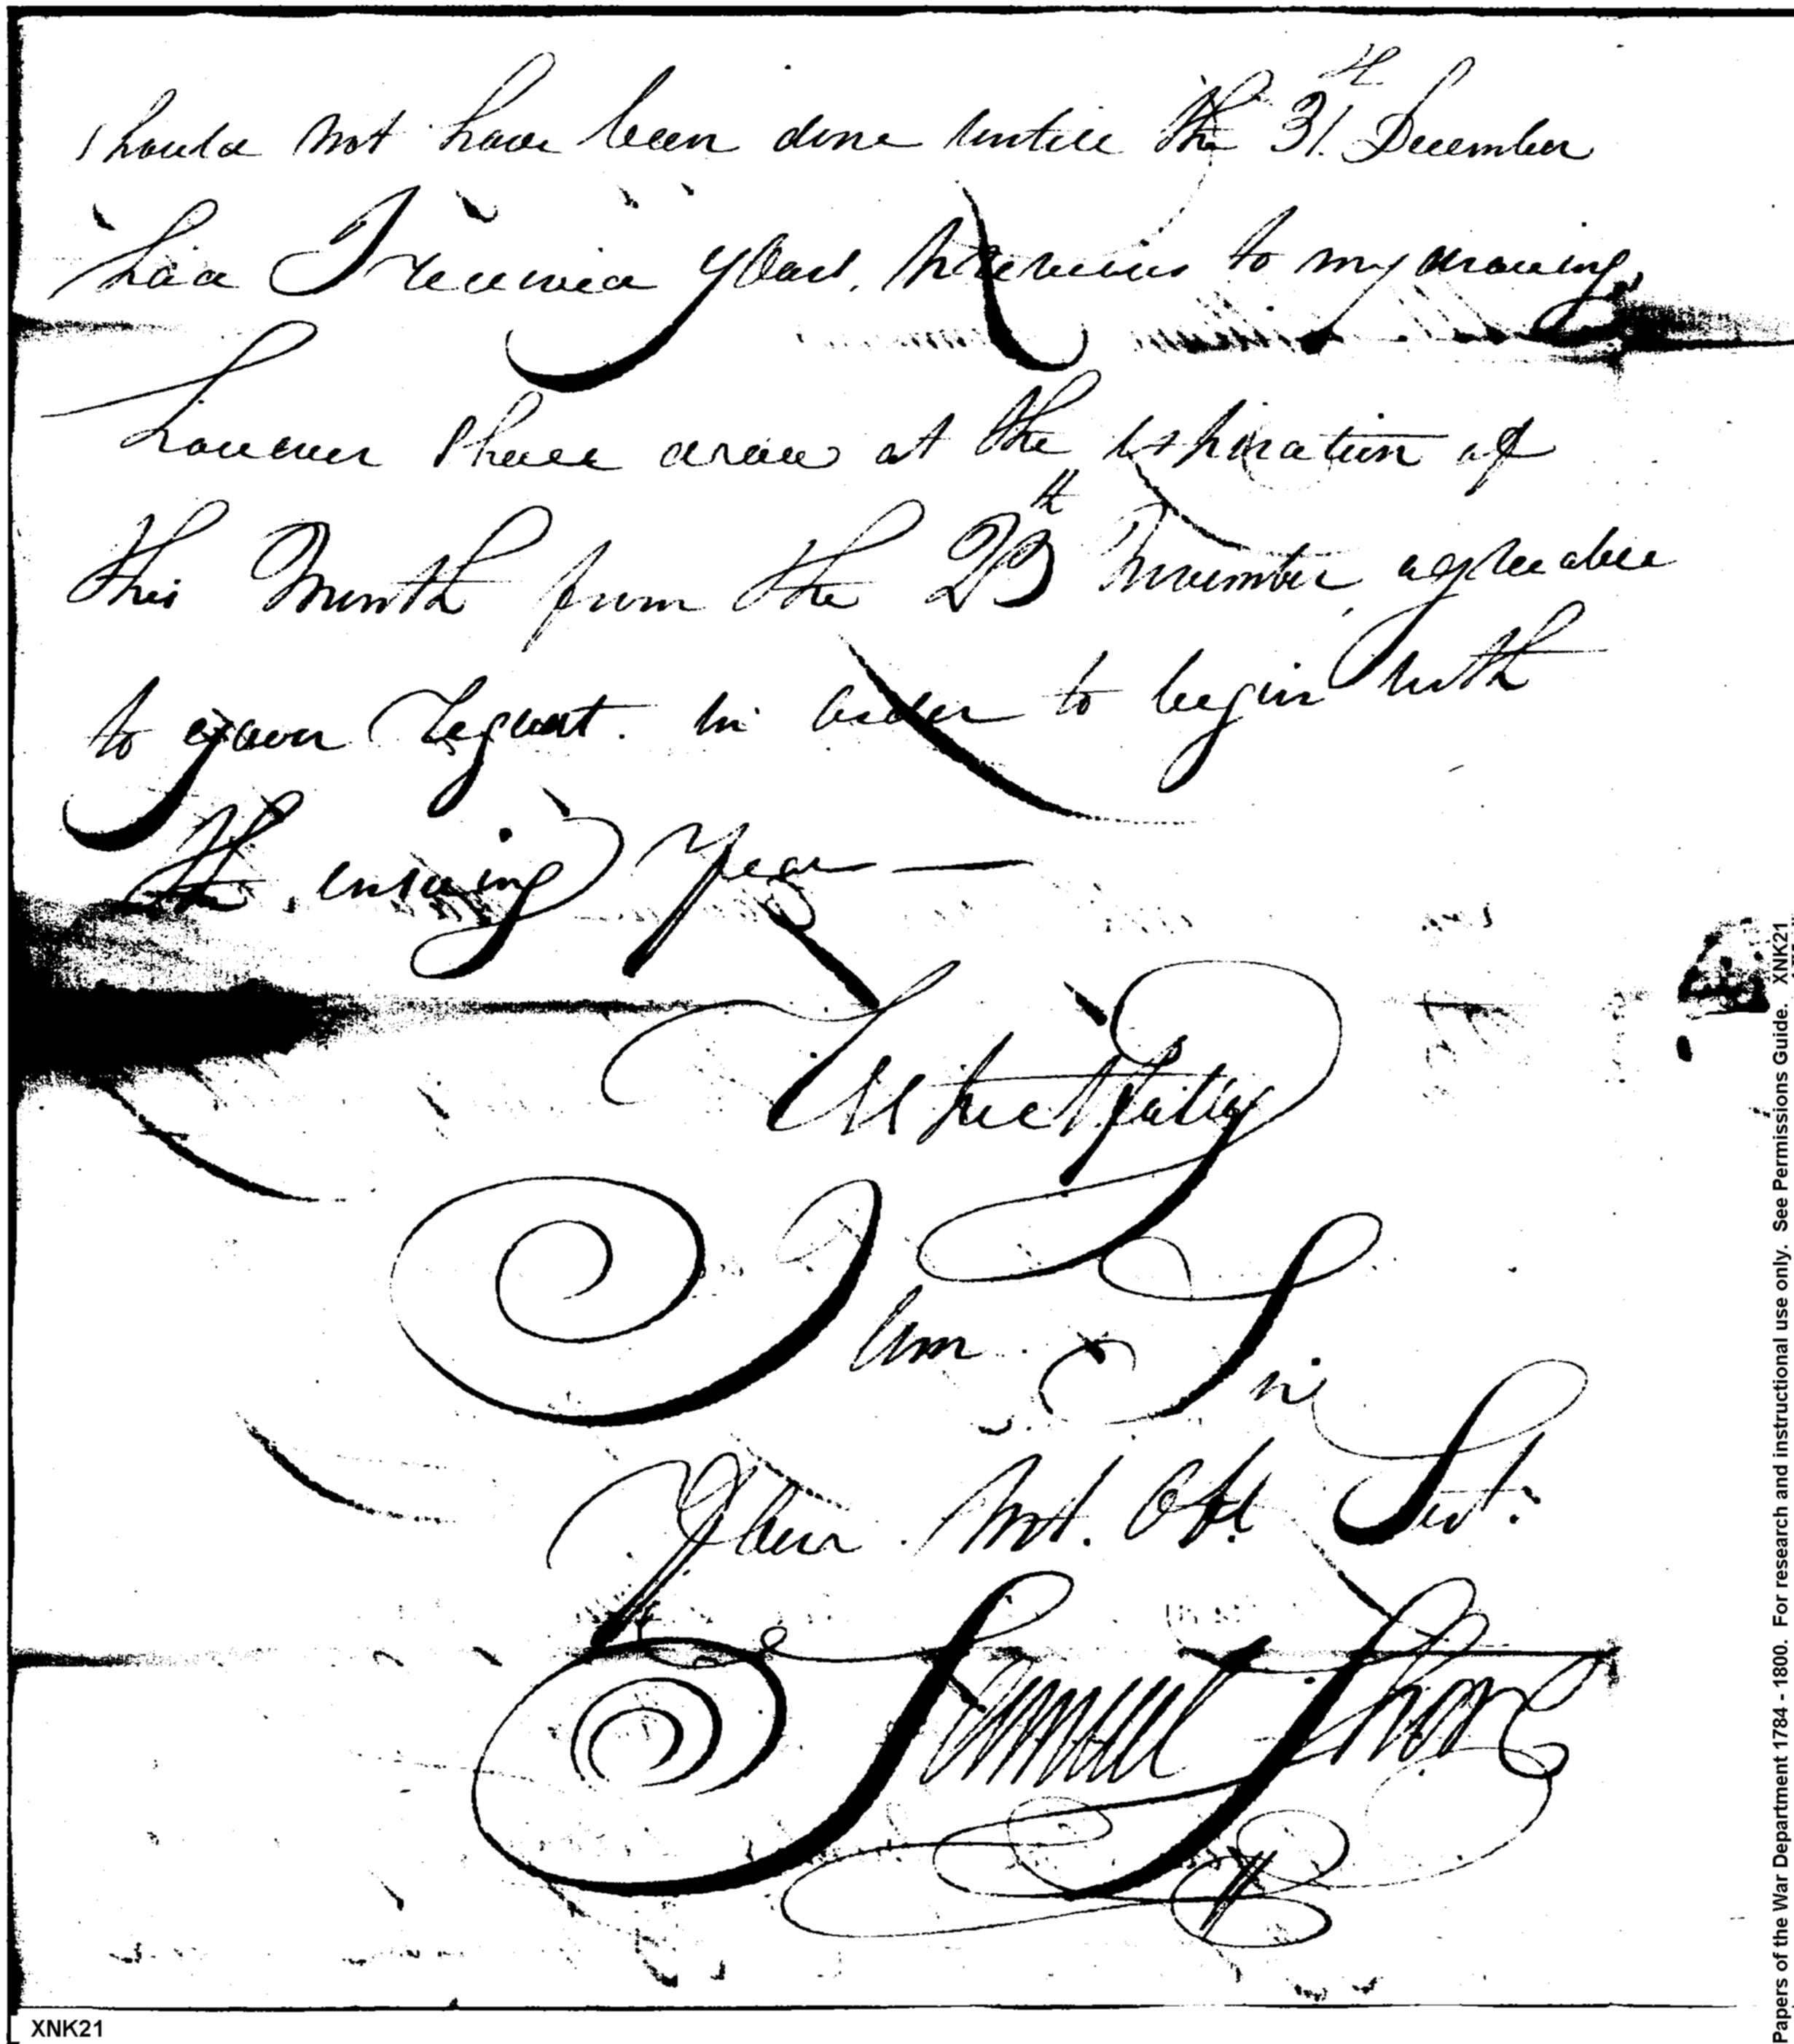 should not have been done untill the 31st December
had I received yours, previous to my drawing,
however shall draw at the expiration of
this Month from the 25th November, agreeable
to your request. in order to begin with
the ensuing Year —
Respectfully
I am Sir
Your Mot. Obt. Servt.
Samuel Shore
XNK21
Papers of the War Department 1784 - 1800. For research and instructional use only. See Permissions Guide. XNK21